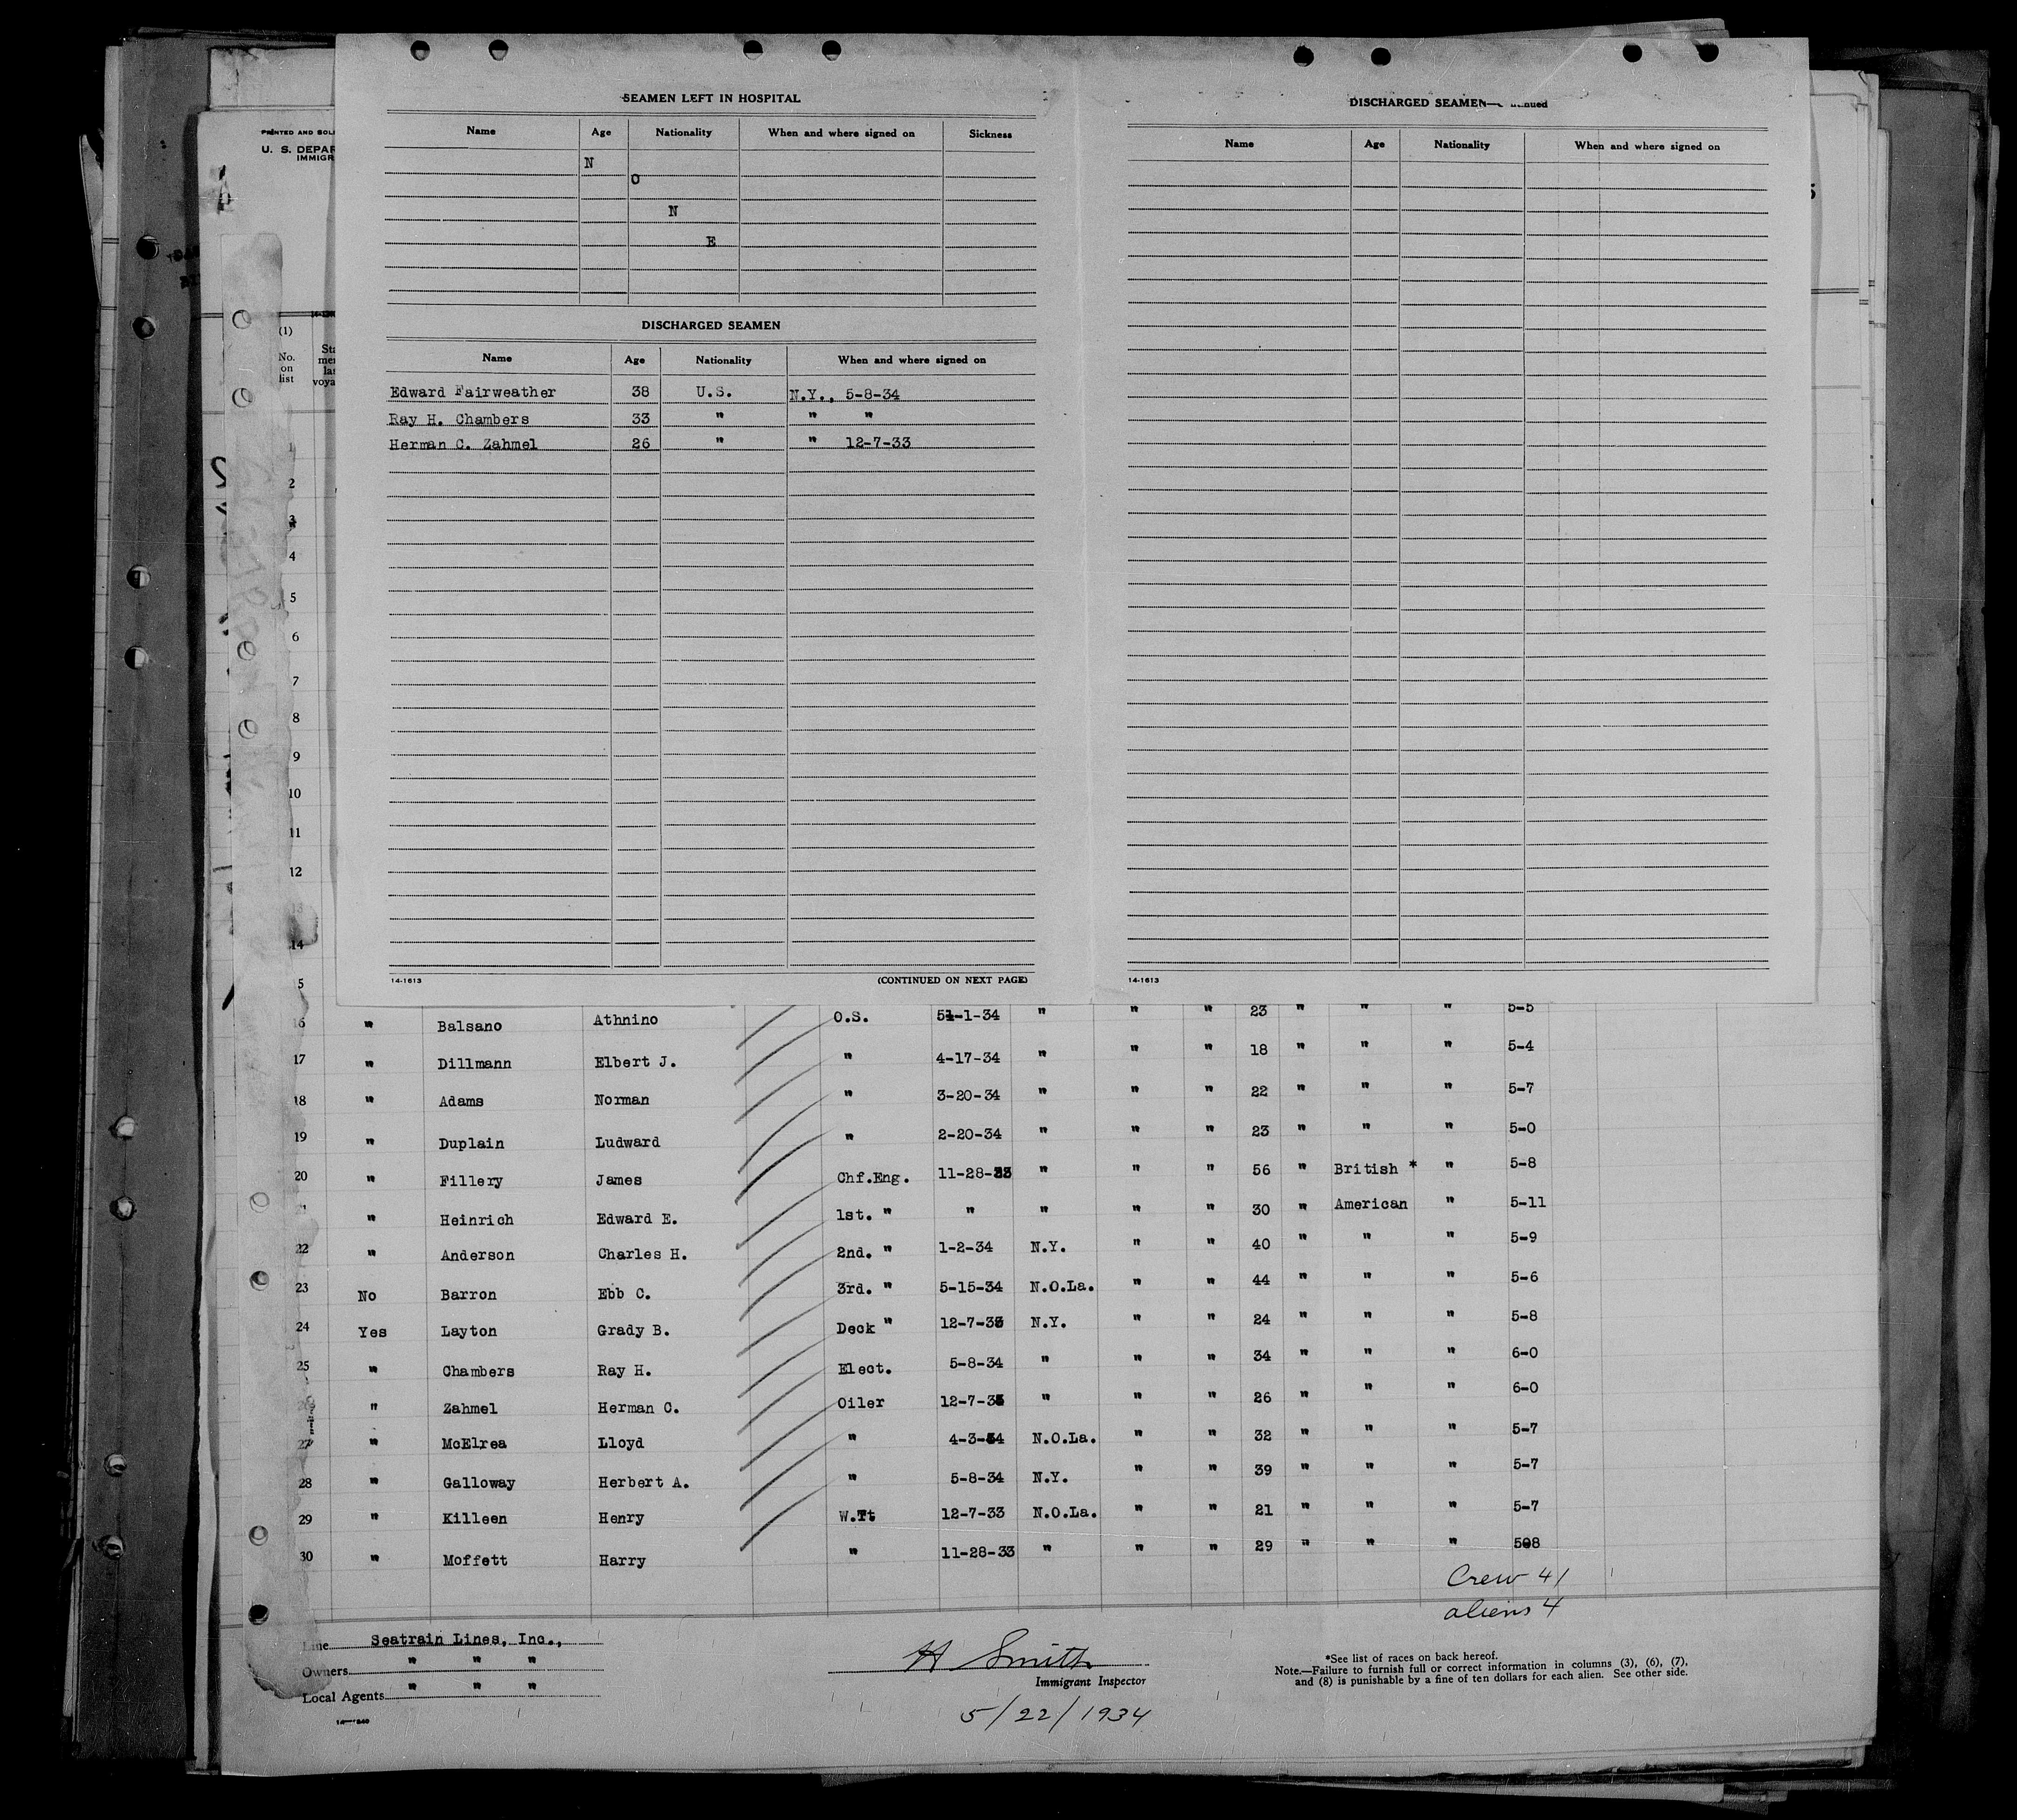 SEAMEN LEFT IN HOSPITAL
Name Age Nationality When and where signed on Sickness
N
O
N
E
DISCHARGED SEAMEN
Name Age Nationality When and where signed on
Edward Fairweather 38 U.S. N.Y., 5-8-34
Ray H. Chambers 33 " " "
Herman C. Zahmel 26 " " 12-7-33
14-1613 (CONTINUED ON NEXT PAGE)
DISCHARGED SEAMEN—
Name Age Nationality When and where signed on
14-1613
PRINTED AND
U. S.
(1)
No. on list
1
2
3
4
5
6
7
8
9
10
11
12
13
14
5
16 " Balsano Athnino O.S. 1-34 " " " 23 " " " 5-5
17 " Dillmann Elbert J. " 4-17-34 " " " 18 " " " 5-4
18 " Adams Norman " 3-20-34 " " " 22 " " " 5-7
19 " Duplain Ludward " 2-20-34 " " " 23 " " " 5-0
20 " Fillery James Chf.Eng. 11-28-33 " " " 56 " British * " 5-8
" Heinrich Edward E. 1st. " " " " " 30 " American " 5-11
22 " Anderson Charles H. 2nd. " 1-2-34 N.Y. " " 40 " " " 5-9
23 No Barron Ebb C. 3rd. " 5-15-34 N.O.La. " " 44 " " " 5-6
24 Yes Layton Grady B. Deck " 12-7-33 N.Y. " " 24 " " " 5-8
25 " Chambers Ray H. Elect. 5-8-34 " " " 34 " " " 6-0
" Zahmel Herman C. Oiler 12-7-33 " " " 26 " " " 6-0
27 " McElrea Lloyd " 4-3-34 N.O.La. " " 32 " " " 5-7
28 " Galloway Herbert A. " 5-8-34 N.Y. " " 39 " " " 5-7
29 " Killeen Henry W.Tt 12-7-33 N.O.La. " " 21 " " " 5-7
30 " Moffett Harry " 11-28-33 " " " 29 " " " 508
Crew 41
aliens 4
Line Seatrain Lines, Inc.,
Owners " " "
Local Agents " " "
H Smith
Immigrant Inspector
5/22/1934
*See list of races on back hereof.
Note.—Failure to furnish full or correct information in columns (3), (6), (7),
and (8) is punishable by a fine of ten dollars for each alien. See other side.